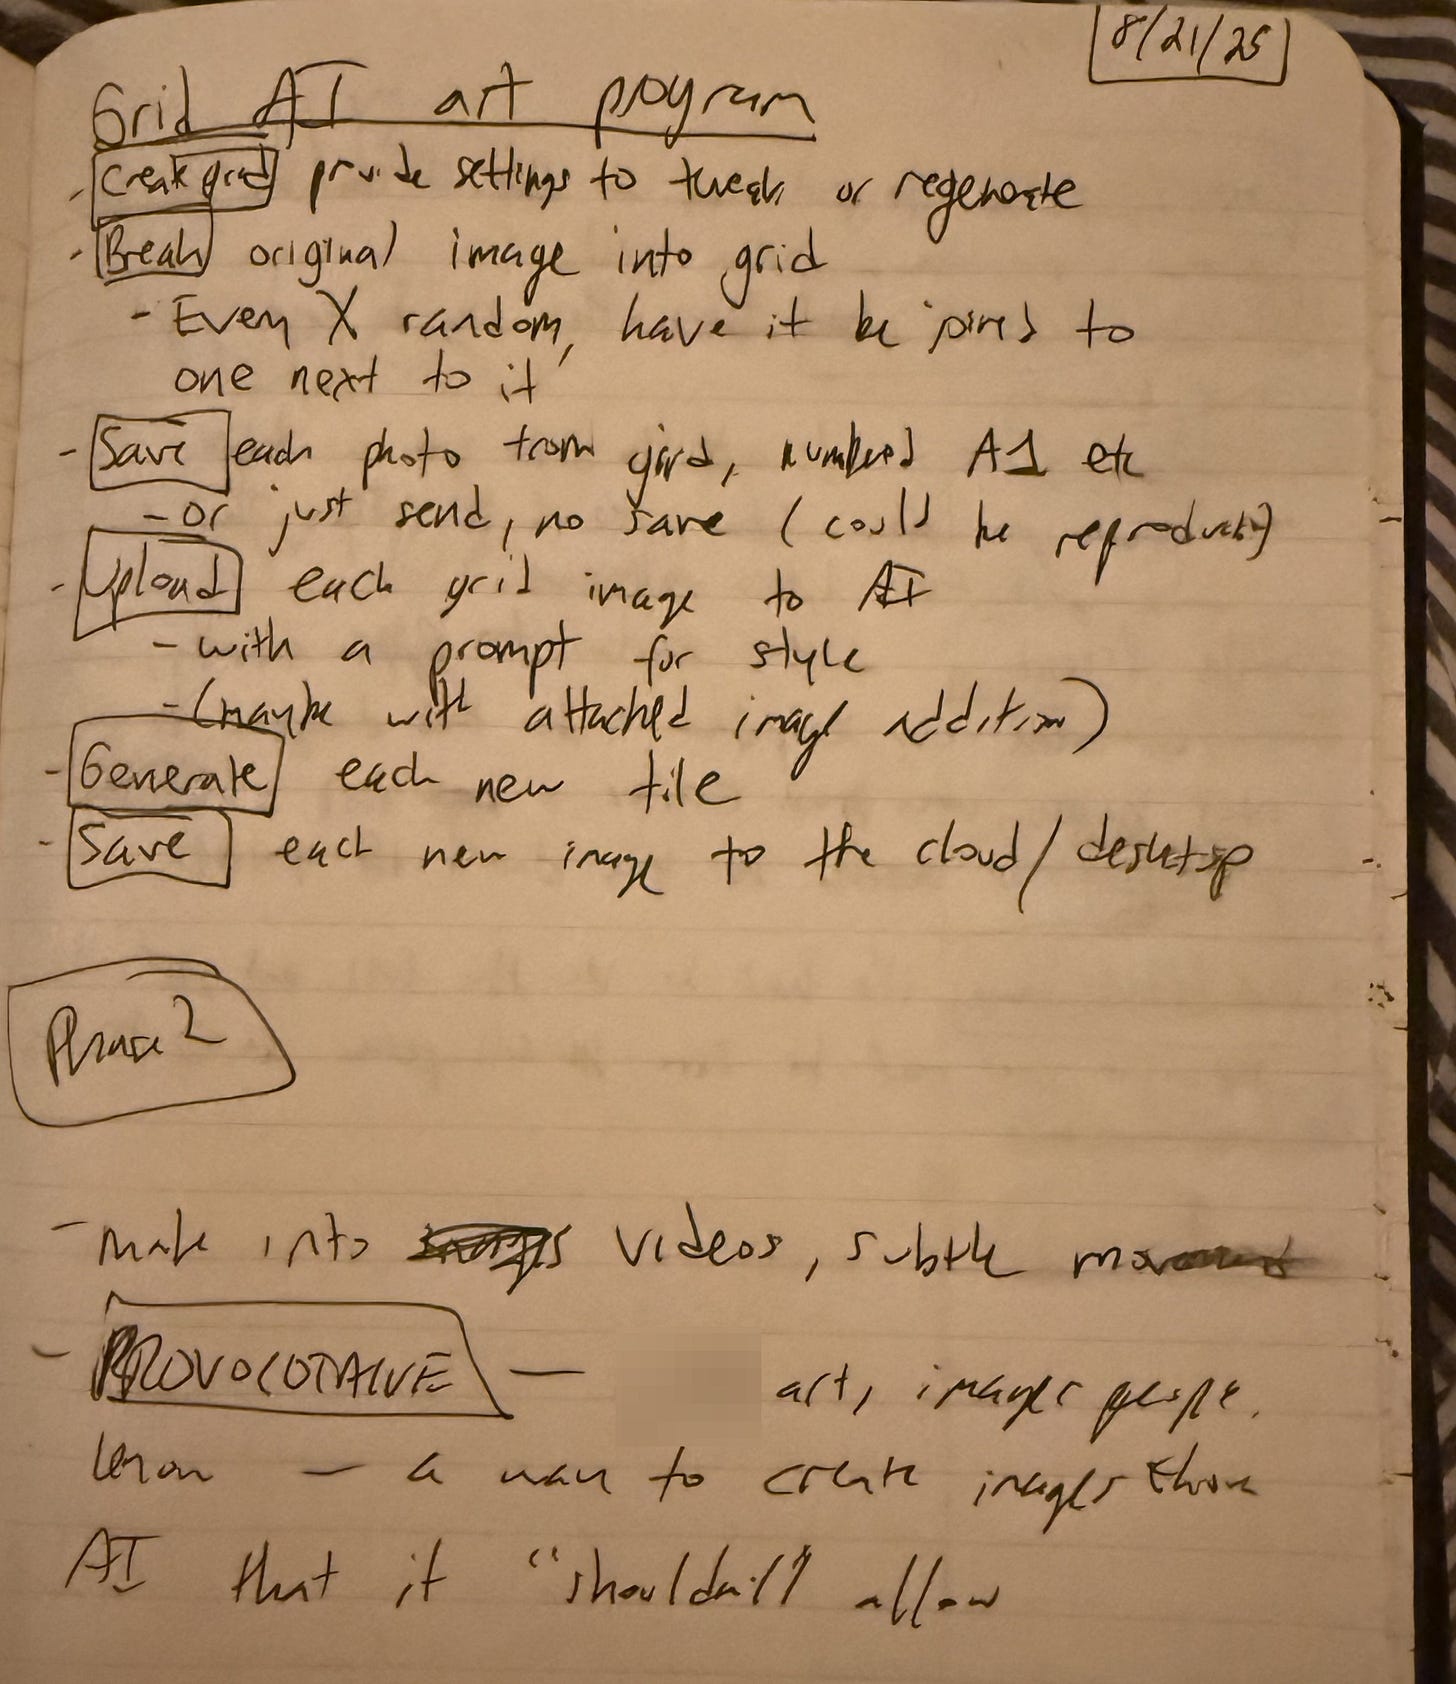 8/21/25
Grid AI art program
- Create grid provide settings to tweak or regenerate
- Break original image into grid
- Every X random, have it be joined to
one next to it
- Save each photo from grid, numbered A1 etc
- or just send, no save (could be reproduced)
- Upload each grid image to AI
- with a prompt for style
- (maybe with attached image addition)
- Generate each new tile
- Save each new image to the cloud/desktop
Phase 2
- make into videos, subtle movement
- PROVOCOTAIVE — art, images people
know — a way to create images
AI that it "shouldn't" allow